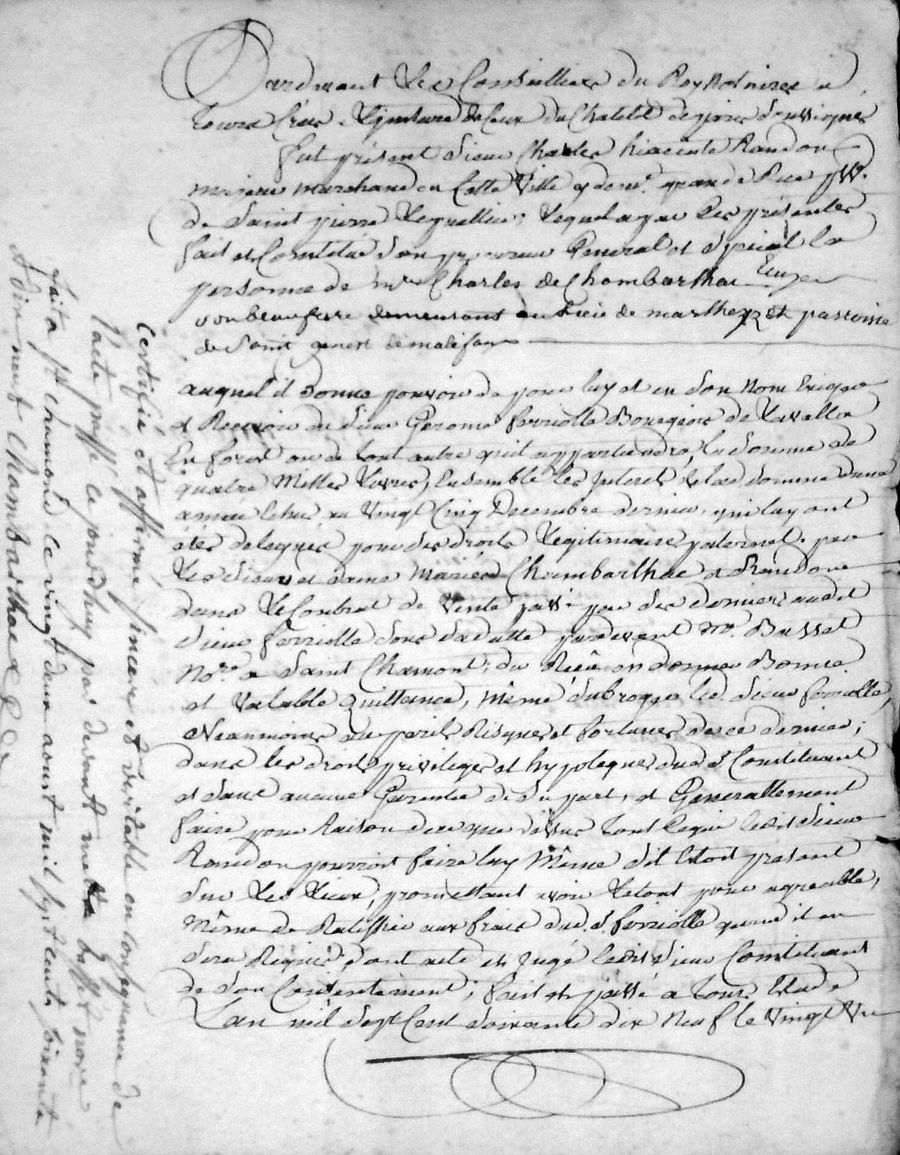 Pardevant Les Conseillers du Roy Notaires a
Tours Créés a L'instar de Ceux du Chatelet de paris soussignés
fut présent Sieur Charles hiacinte Randon
marchand en Cette Ville y demt. grande Rue psse.
de Saint pierre Lequel par Ces présentes
fait et Constitué son procureur General et Spécial la
personne de mre Charles de Chambarlhac Ecuyer
son beau frere demeurant au Lieu de marlhes et parroisse
de Saint genest de malifaux
auquel il donne pouvoir de pour luy et en Son Nom Exiger
et Recevoir du Sieur Gerome ferriolle Bourgeois de
En forest ou de tout autre qu'il appartiendra, la Somme de
quatre Milles Livres, Ensemble Les Interets de lad. Somme d'une
année Echue au Vingt Cinq Decembre dernier, qui luy ont
etés delegués pour Ses droits Legitimaires paternels par
Les Sieur et dame Mariés Chambarlhac et Randon
dans Le Contrat de Vente passé par Ces derniers audit
Sieur ferriolle Sous Sa datte pardevant Me. Basset
Nore. a Saint Chamont; du Reçu en donner Bonne
et Valable Quittance, Même Subroger led. Sieur ferriolle,
Neanmoins au peril Risques et fortunes de ce dernier;
dans les droits privileges et hypoteques dud. Sr. Constituant
et Sans aucune Garentie de Sa part, et Generallement
faire pour Raison de ce que dessus tout Ceque ledit Sieur
Randon pourroit faire luy Même S'il etoit présent
Sur Les Lieux, promettant avoir Letout pour agreable,
Même de Ratiffier aux frais dud. S. ferriolle quand il en
Sera Requis dont acte et Jugé ledit Sieur Constituant
de Son Consentement; fait et passé a Tours Etude
L'an mil Sept Cent Soixante dix Neuf le Vingt Un
Certiffié et affirmé sincere et veritable en consequence de
l'acte passé ce jourdhuy par devant me Basset nore
faita St. chamond ce vingt deux aoust mil sept cents soixante
et dix neuf chambarlhac